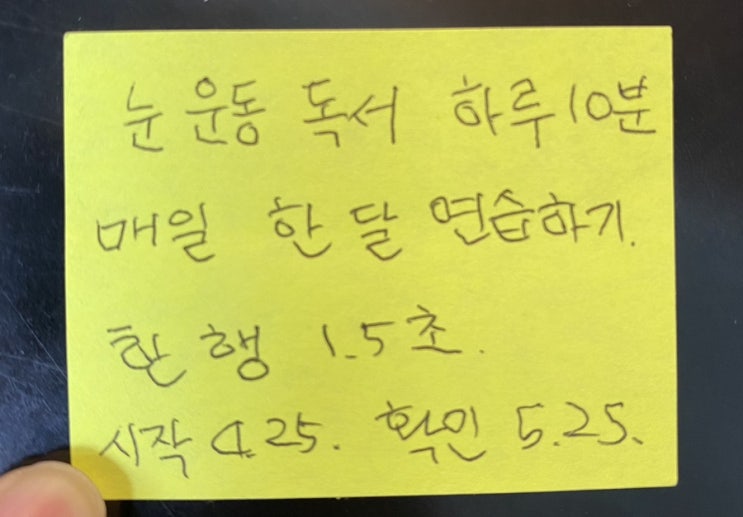 눈 운동 독서 하루 10분
매일 한 달 연습하기.
한 행 1.5초.
시작 4.25. 확인 5.25.